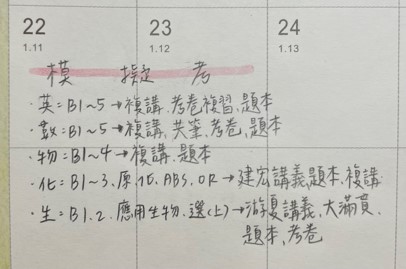 22 23 24
1.11 1.12 1.13
模 擬 考
·英:B1~5→複講.考卷複習.題本
·數:B1~5→複講.共筆.考卷.題本
·物:B1~4→複講.題本
·化:B1~3.原.化.ABS.OR→建宏講義.題本.複講
·生:B1.2.應用生物.選(上)→游夏講義.大滿貫.
題本.考卷